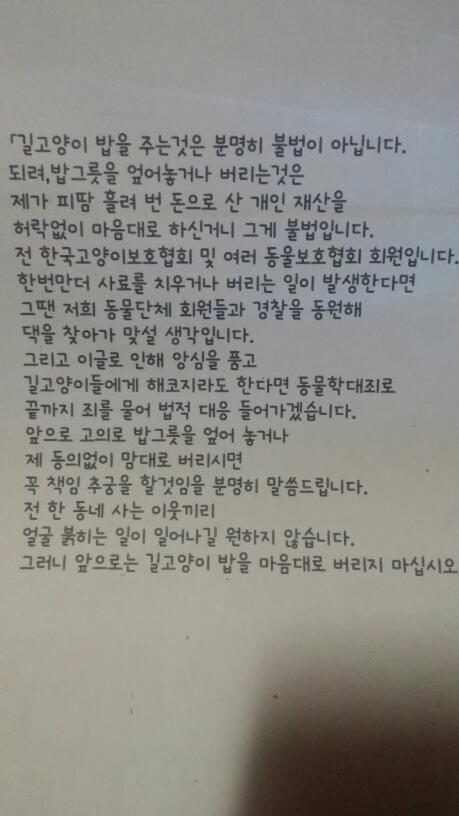 「길고양이 밥을 주는것은 분명히 불법이 아닙니다.
되려,밥그릇을 엎어놓거나 버리는것은
제가 피땀 흘려 번 돈으로 산 개인 재산을
허락없이 마음대로 하신거니 그게 불법입니다.
전 한국고양이보호협회 및 여러 동울보호협회 회원입니다.
한번만더 사료를 치우거나 버리는 일이 발생한다면
그땐 저희 동물단체 회원들과 경찰을 동원해
댁을 찾아가 맞설 생각입니다.
그리고 이글로 인해 앙심을 품고
길고양이들에게 해코지라도 한다면 동물학대죄로
끝까지 죄를 물어 법적 대응 들어가겠습니다.
앞으로 고의로 밥그릇을 엎어 놓거나
제 동의없이 맘대로 버리시면
꼭 책임 추궁을 할것임을 분명히 말씀드립니다.
전 한 동네 사는 이웃끼리
얼굴 붉히는 일이 일어나길 원하지 않습니다.
그러니 앞으로는 길고양이 밥을 마음대로 버리지 마십시오